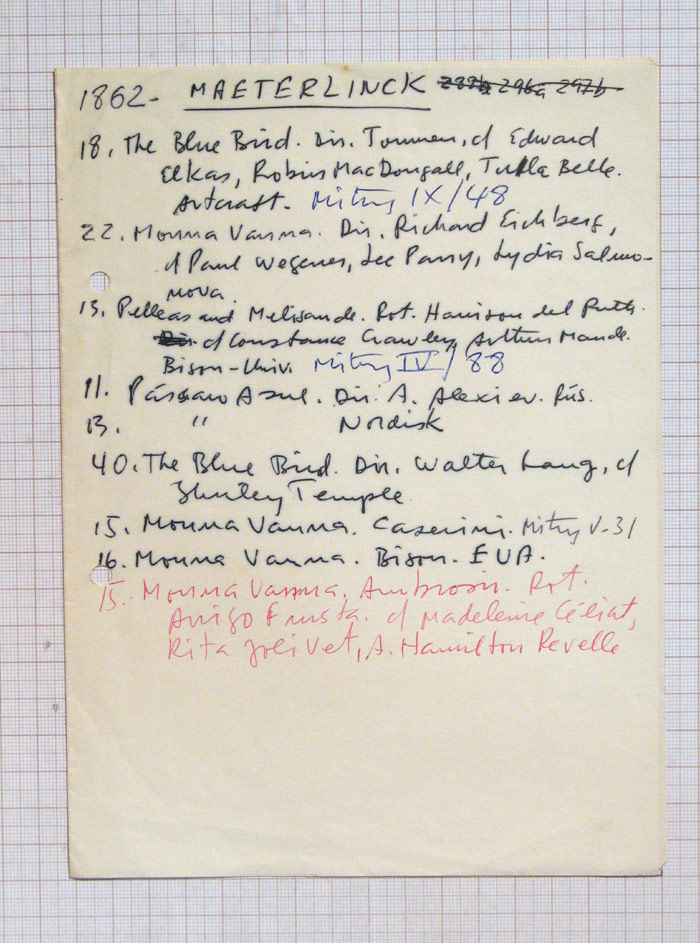 1862- MAETERLINCK 289b 296a 297b
18. The Blue Bird. Dir. Tourneur, c/ Edward
Elkas, Robin MacDougall, Tulla Belle.
Artcraft. Mitry IX/48
22. Monna Vanna. Dir. Richard Eichberg,
c/ Paul Wegener, Lee Parry, Lydia Salmo-
nova.
13. Pelleas and Melisande. Rot. Harrison del Ruth.
Dir. c/ Constance Crawley, Arthur Maude.
Bison-Univ. Mitry IV/88
11. Pássaro Azul. Dir. A. Alexiev. Rús.
13. " Nordisk
40. The Blue Bird. Dir. Walter Lang, c/
Shirley Temple
15. Monna Vanna. Caserini. Mitry V-31
16. Monna Vanna. Bison. EUA.
15. Monna Vanna. Ambrosio. Rot.
Arrigo Frusta. c/ Madeleine Céliat,
Rita Jolivet, A. Hamilton Revelle